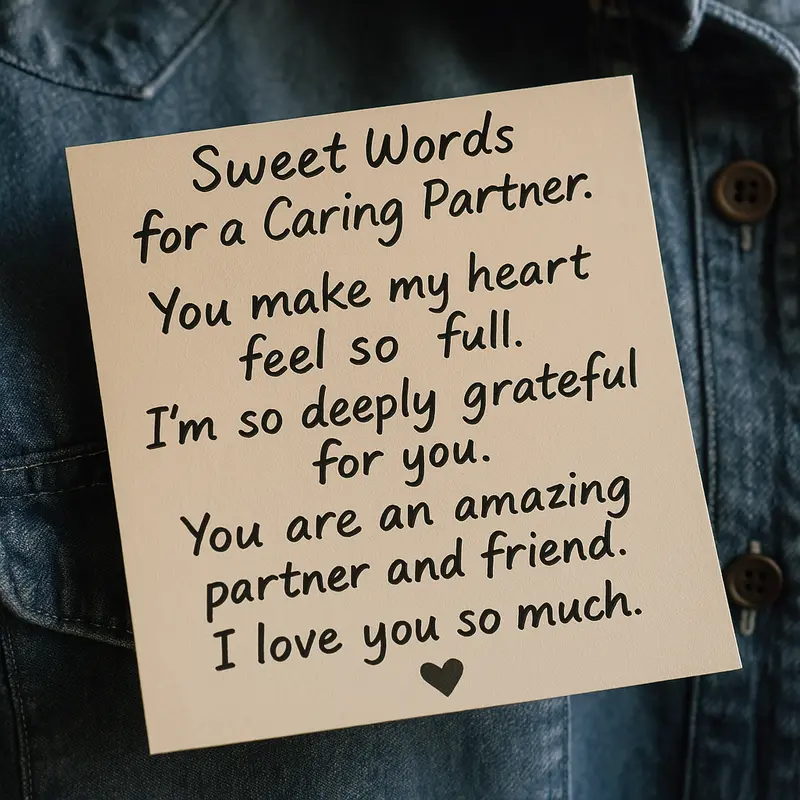 Sweet Words
for a Caring Partner.
You make my heart
feel so full.
I'm so deeply grateful
for you.
You are an amazing
partner and friend.
I love you so much.